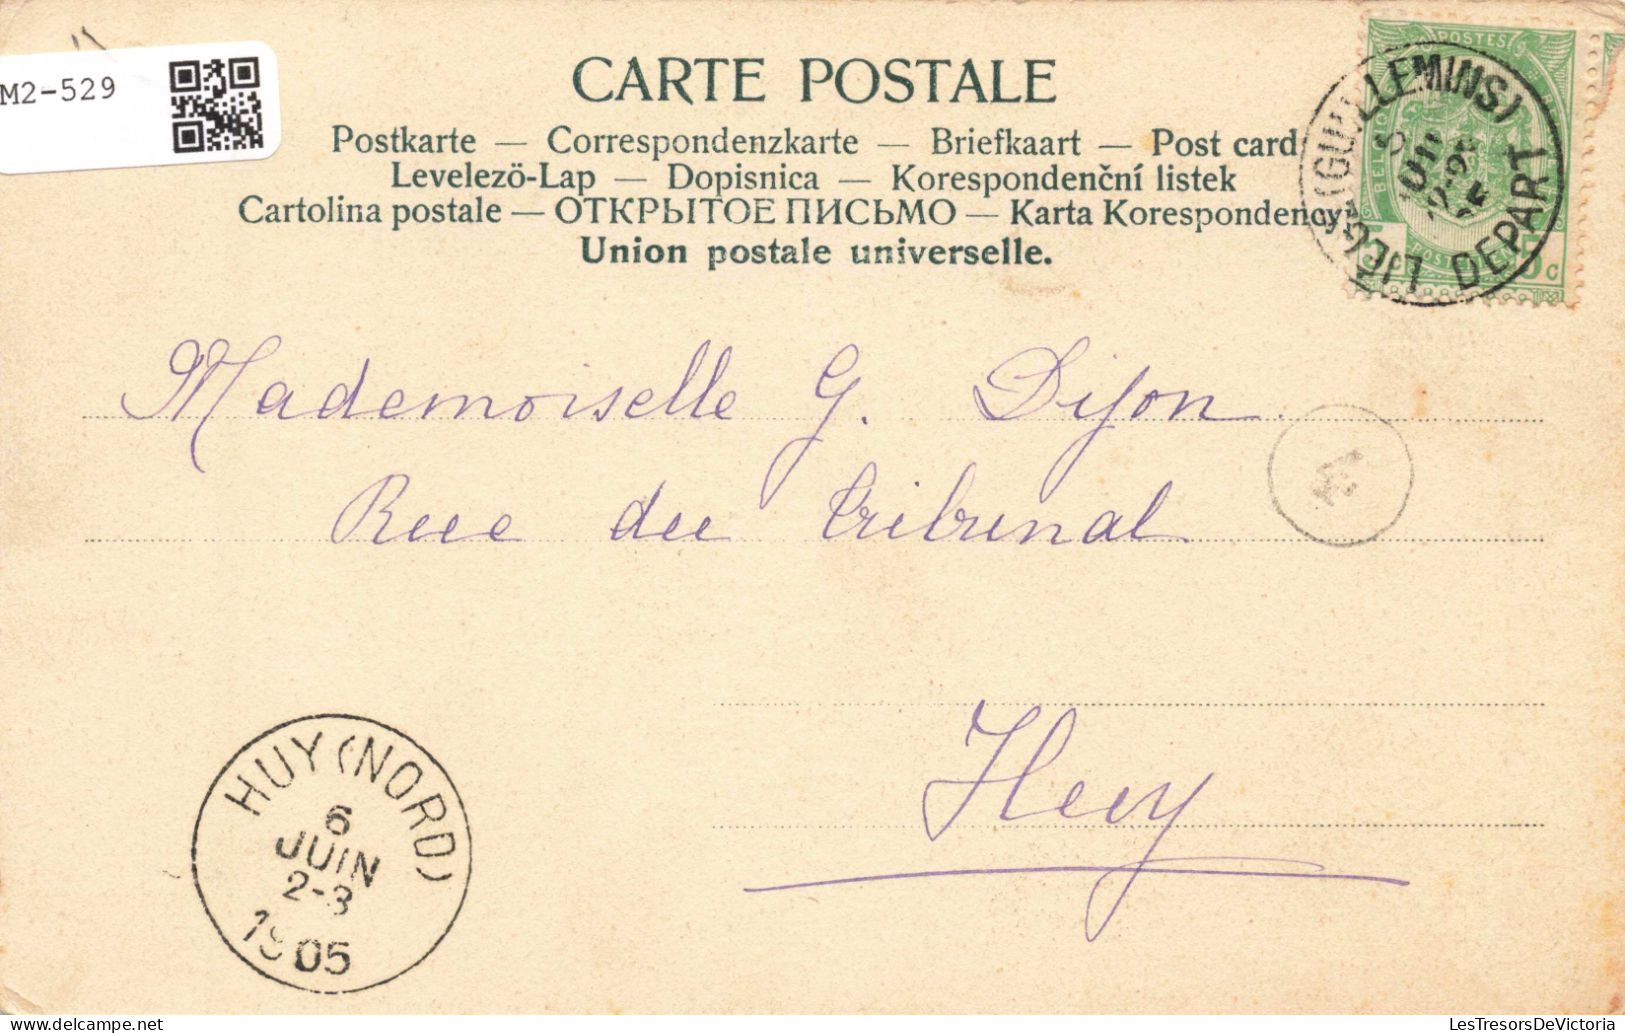 M2-529
CARTE POSTALE
Postkarte — Correspondenzkarte — Briefkaart — Post card
Levelezö-Lap — Dopisnica — Korespondenční listek
Cartolina postale — ОТКРЫТОЕ ПИСЬМО — Karta Korespondency
Union postale universelle.
POSTES
5c
LIEGE (GUILLEMINS)
DEPART
Mademoiselle G. Dijon
Rue du tribunal
Huy
HUY (NORD)
6
JUIN
2-3
1905
LesTresorsDeVictoria